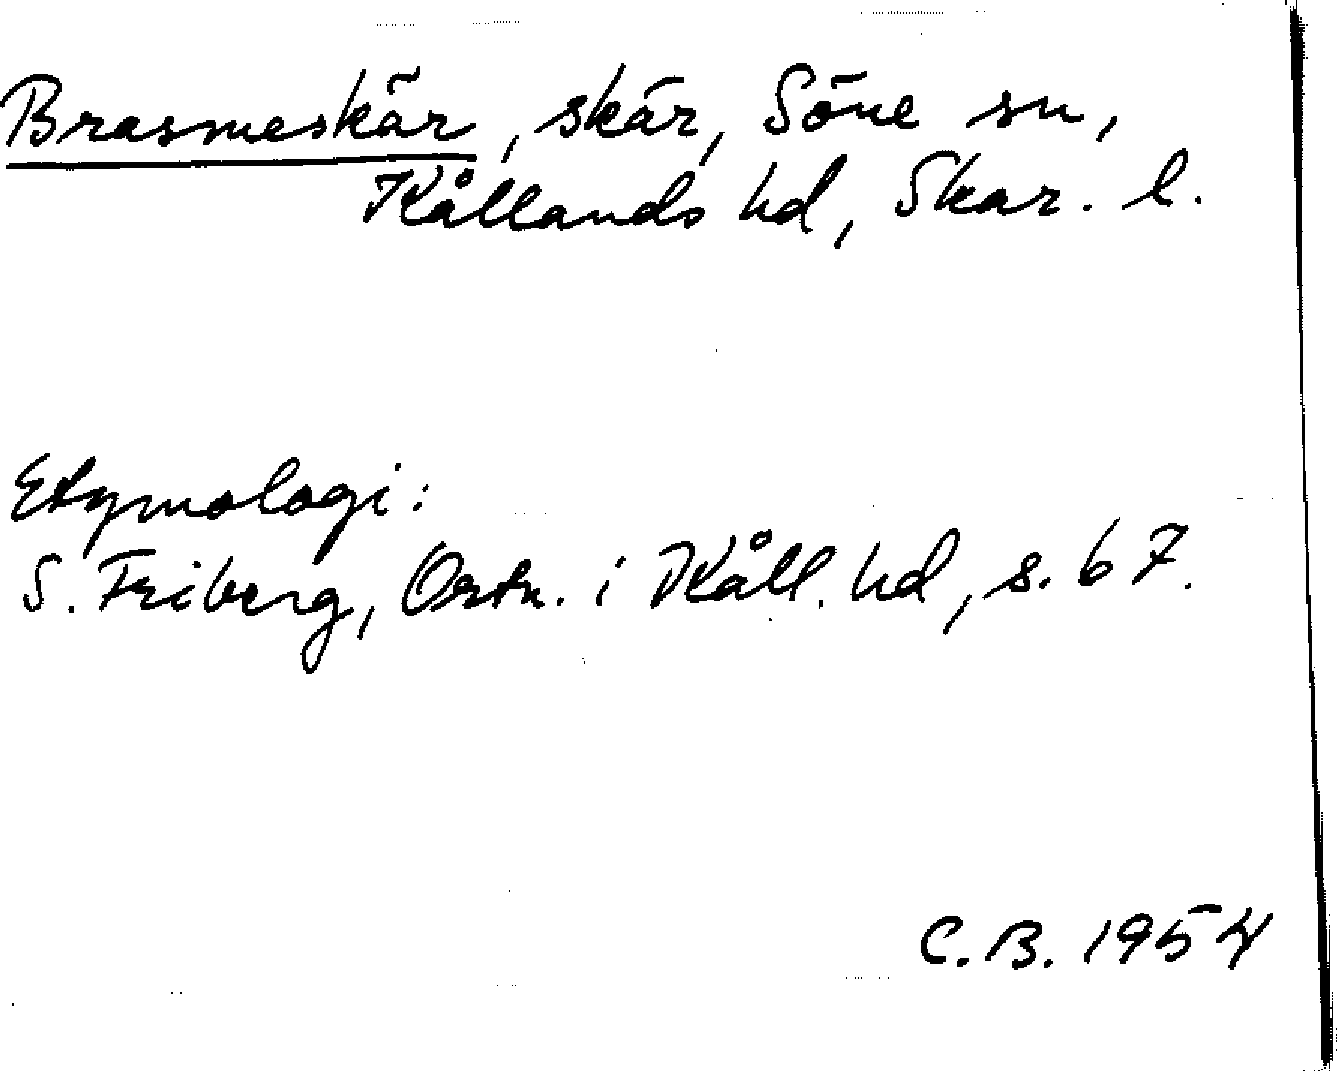 Brasmeskär, skär, Söne sn,
Kållands hd, Skar. l.
Etymologi:
S. Friberg, Ortn. i Kåll. hd, s. 67.
C. B. 1954